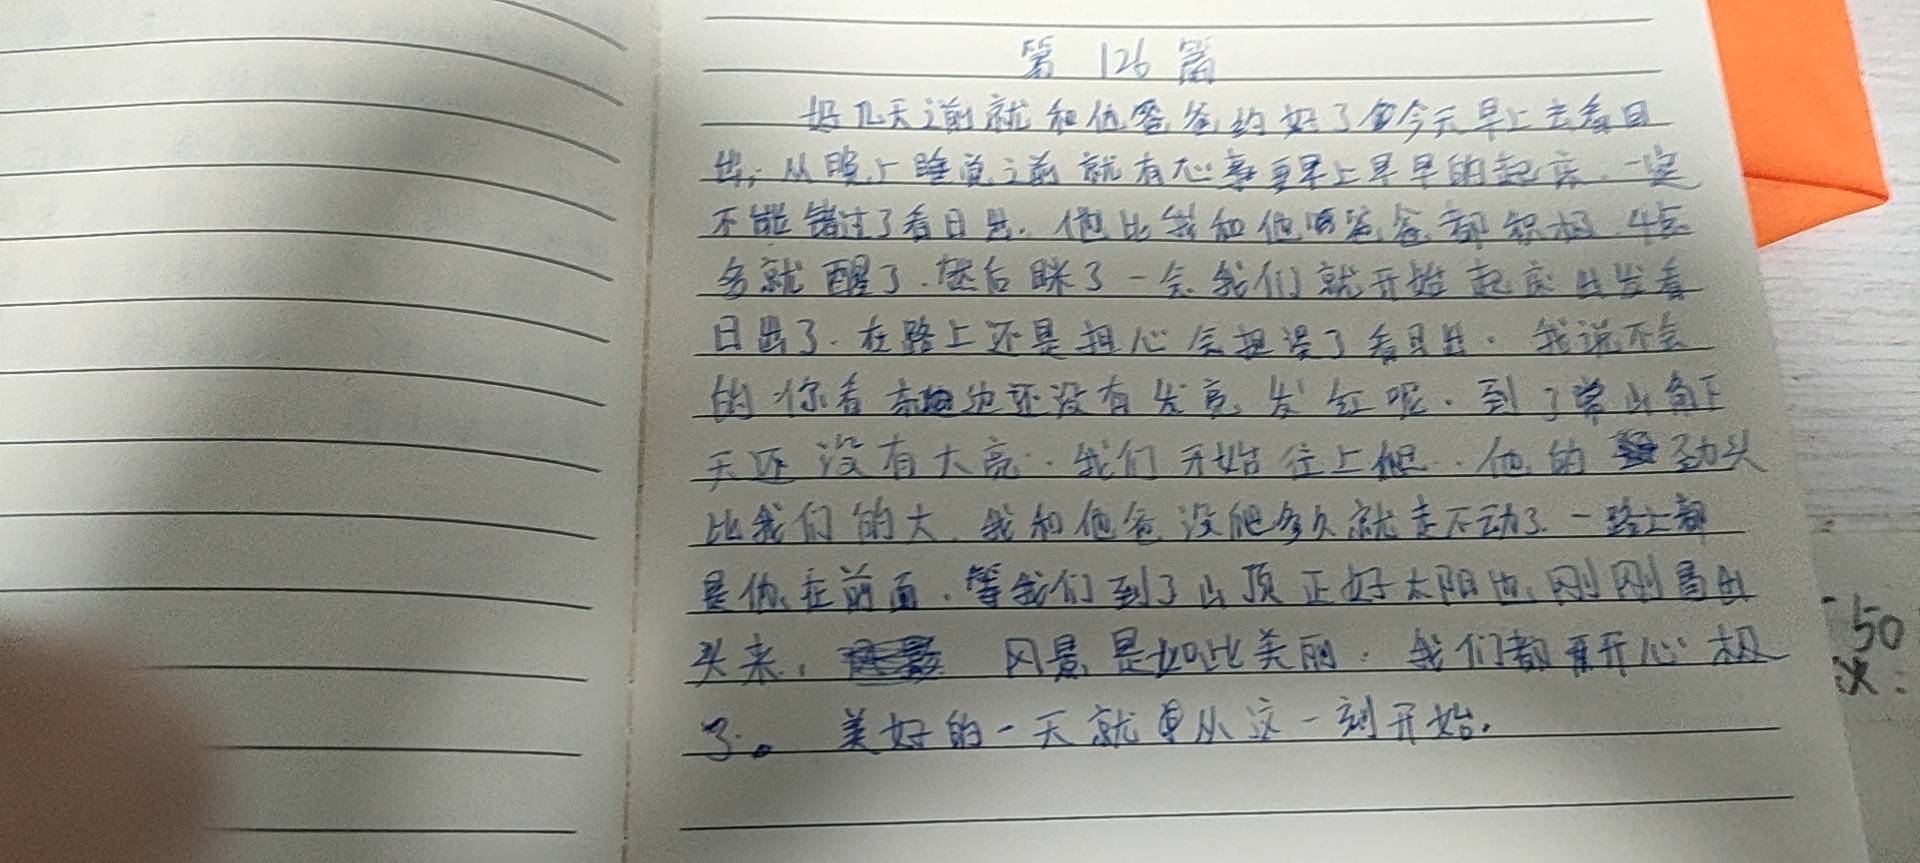 第 126 篇
好几天之前就和他爸爸约好了今天早上去看日
出,从晚上睡觉之前就有心事要早上早早的起床.一定
不能错过了看日出.他比我和他爸爸都积极.4点
多就醒了.然后眯了一会.我们就开始起床出发看
日出了.在路上还是担心会耽误了看日出.我说不会
的你看 边还没有发亮发红呢.到了 山角下
天还没有大亮.我们开始往上爬.他的 劲头
比我们的大.我和他爸没爬多久就走不动了.一路上都
是他在前面.等我们到了山顶正好太阳也刚刚冒出
头来. 风景是如此美丽.我们都开心极
了。美好的一天就 从这一刻开始.
50
次: